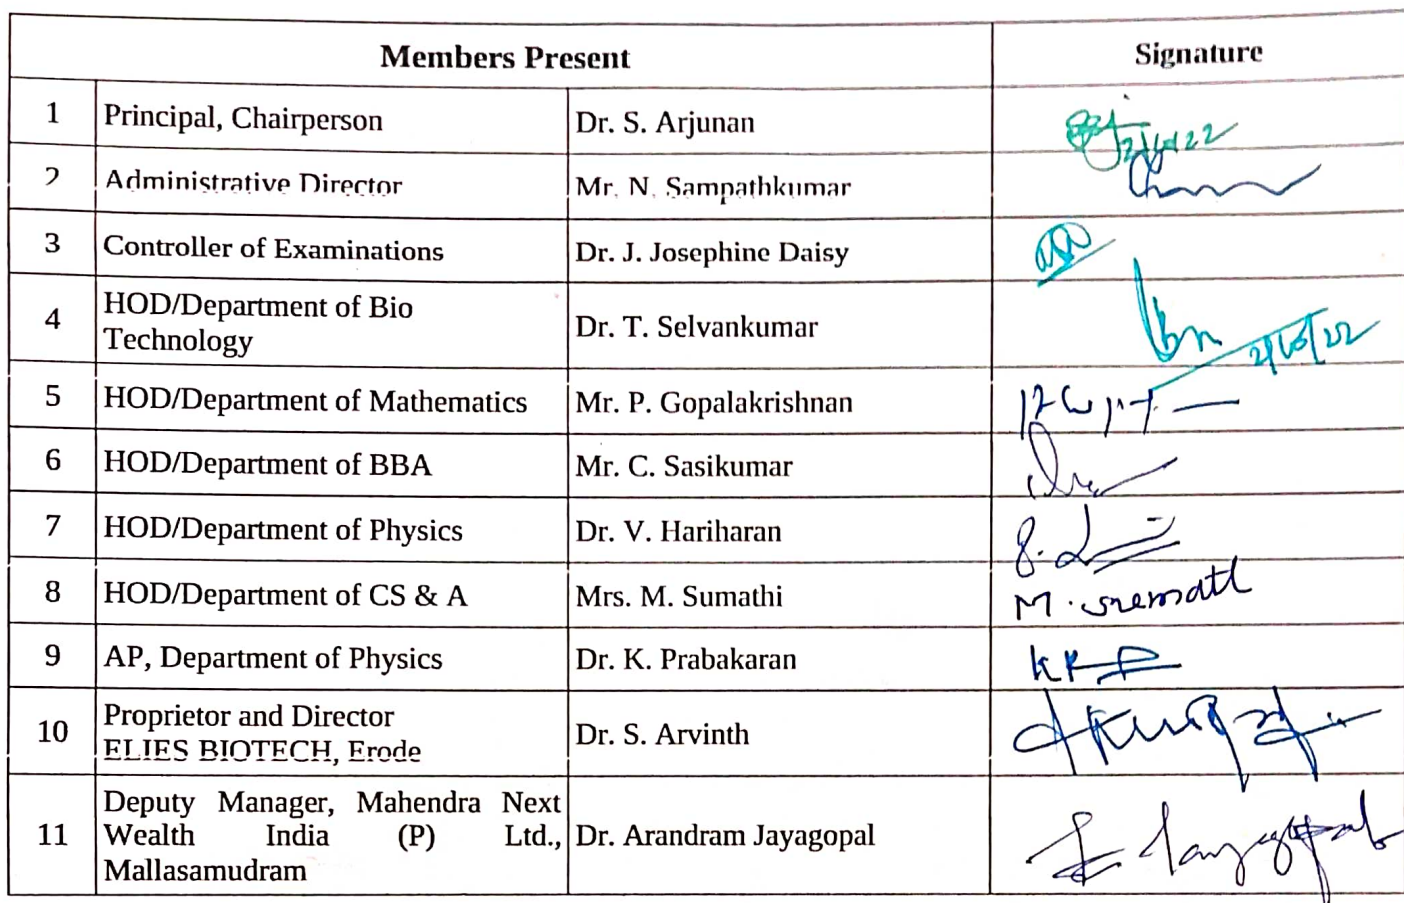 Members Present Signature
1 Principal, Chairperson Dr. S. Arjunan
2 Administrative Director Mr. N. Sampathkumar
3 Controller of Examinations Dr. J. Josephine Daisy
4 HOD/Department of Bio
Technology Dr. T. Selvankumar
5 HOD/Department of Mathematics Mr. P. Gopalakrishnan
6 HOD/Department of BBA Mr. C. Sasikumar
7 HOD/Department of Physics Dr. V. Hariharan
8 HOD/Department of CS & A Mrs. M. Sumathi
9 AP, Department of Physics Dr. K. Prabakaran
10 Proprietor and Director
ELIES BIOTECH, Erode Dr. S. Arvinth
11 Deputy Manager, Mahendra Next
Wealth India (P) Ltd., Dr. Arandram Jayagopal
Mallasamudram